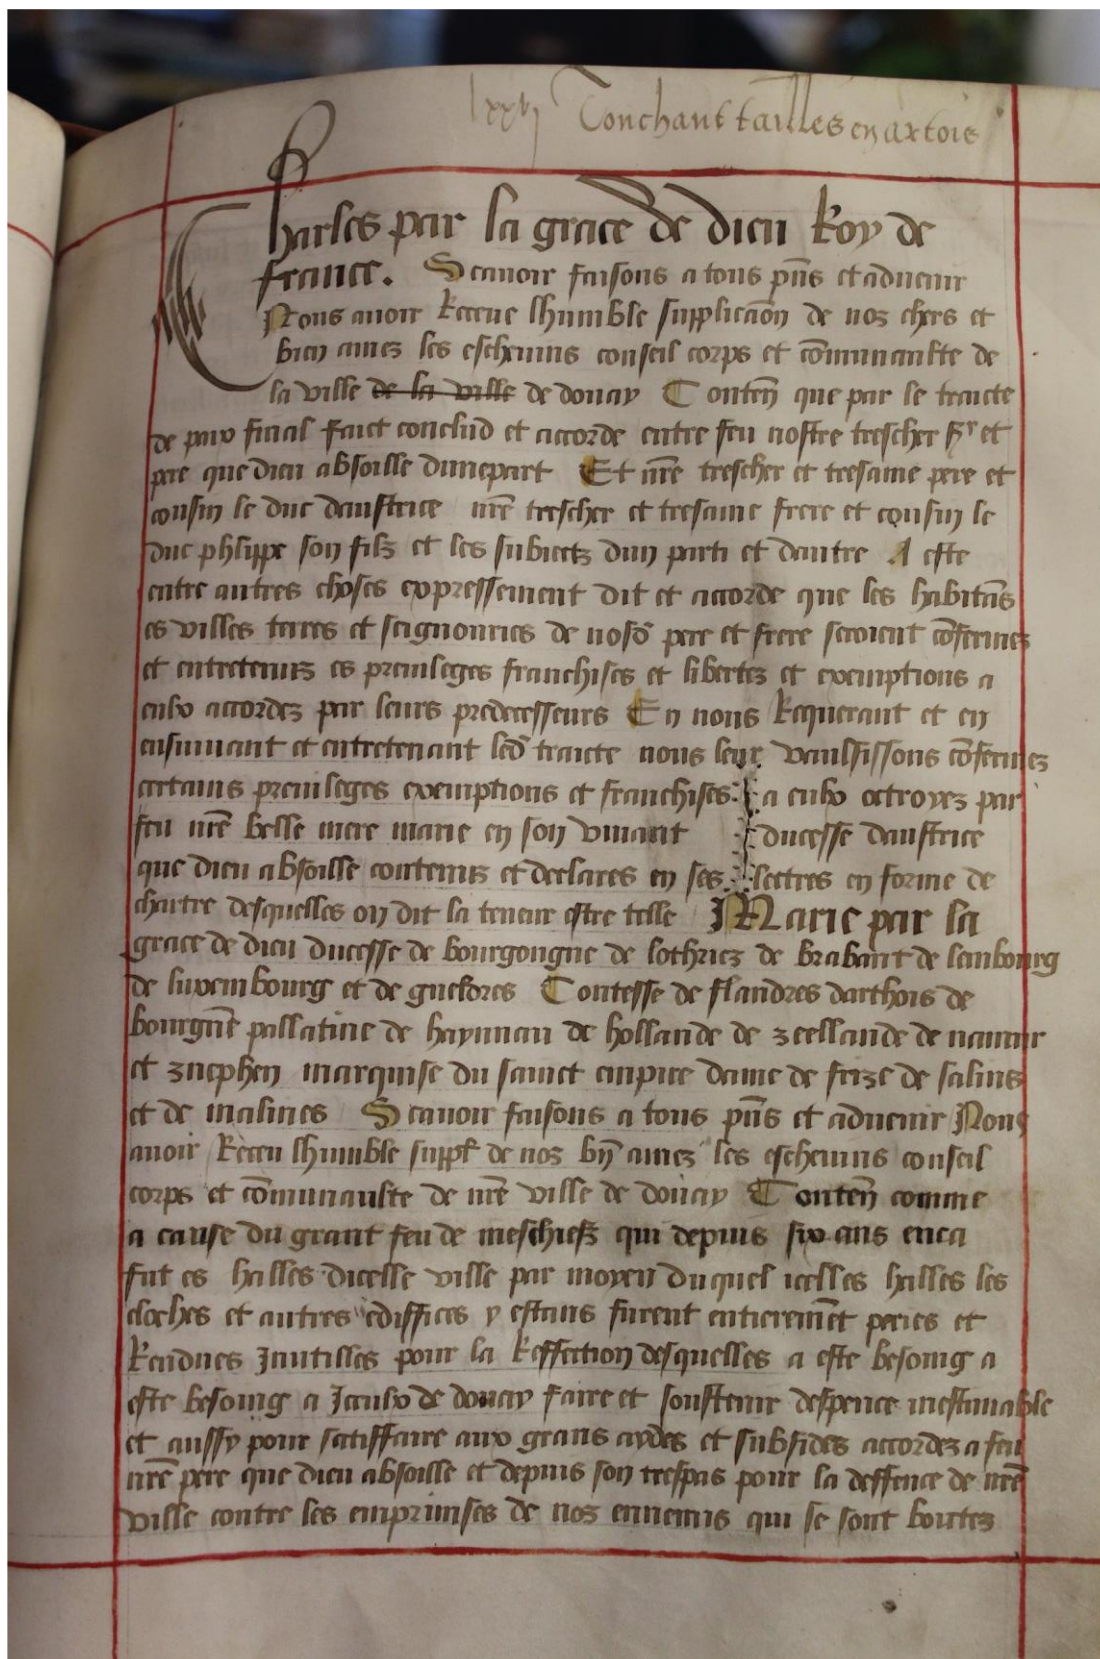 lxxvj Touchant tailles en artois
Charles par la grace de dieu Roy de
france. Scauoir faisons a tous pñs et aduenir
Nous auoir Receue lhumble supplicaõn de noz chers et
bien amez les escheuins conseil corps et cõmunaulte de
la ville de la ville de douay Conteñ que par le traicte
de paix final faict conclud et accorde entre feu nostre trescher sr et
pere que dieu absoille dunepart Et nr̃e trescher et tresame pere et
cousin le duc daustrice nr̃e trescher et tresame frere et cousin le
duc phlippe son filz et les subiectz dun parti et dautre A este
entre autres choses expressement dit et accorde que les habitãs
es villes terres et seignouries de nosd̃ pere et frere seroient cõfermez
et entretenuz es preuileges franchises et libertez et exemptions a
eulx accordez par leurs predecesseurs En nous Requerant et en
ensuiuant et entretenant led̃ traicte nous leur vaulsissons cõfermez
certains preuileges exemptions et franchises a eulx octroyez par
feu nr̃e belle mere marie en son viuant ducesse daustrice
que dieu absoille contenuz et declares en ses lettres en forme de
chartre desquelles on dit la teneur estre telle Marie par la
grace de dieu ducesse de bourgongne de lothriez de brabant de lembourg
de luxembourg et de gueldres Contesse de flandres darthois de
bourgñe pallatine de haynnau de hollande de zeellande de namur
et zuephen marquise du sainct empire dame de frize de salins
et de malines Scauoir faisons a tous pñs et aduenir Nous
auoir Receu lhumble suppl̃ de noz bñ amez les escheuins conseil
corps et cõmunaulte de nr̃e ville de douay Conteñ comme
a cause du grant feu de meschief qui depuis six ans enca
fut es halles dicelle ville par moyen duquel icelles halles les
cloches et autres ediffices y estans furent entieremẽt peries et
Rendues Inutilles pour la Reffection desquelles a este besoing a
este besoing a Iceulx de douay faire et soustenir despence inestimable
et aussy pour satiffaire aux grans aydes et subsides accordez a feu
nr̃e pere que dieu absoille et depuis son trespas pour la deffence de nr̃e
ville contre les emprinses de noz ennemis qui se sont boutez